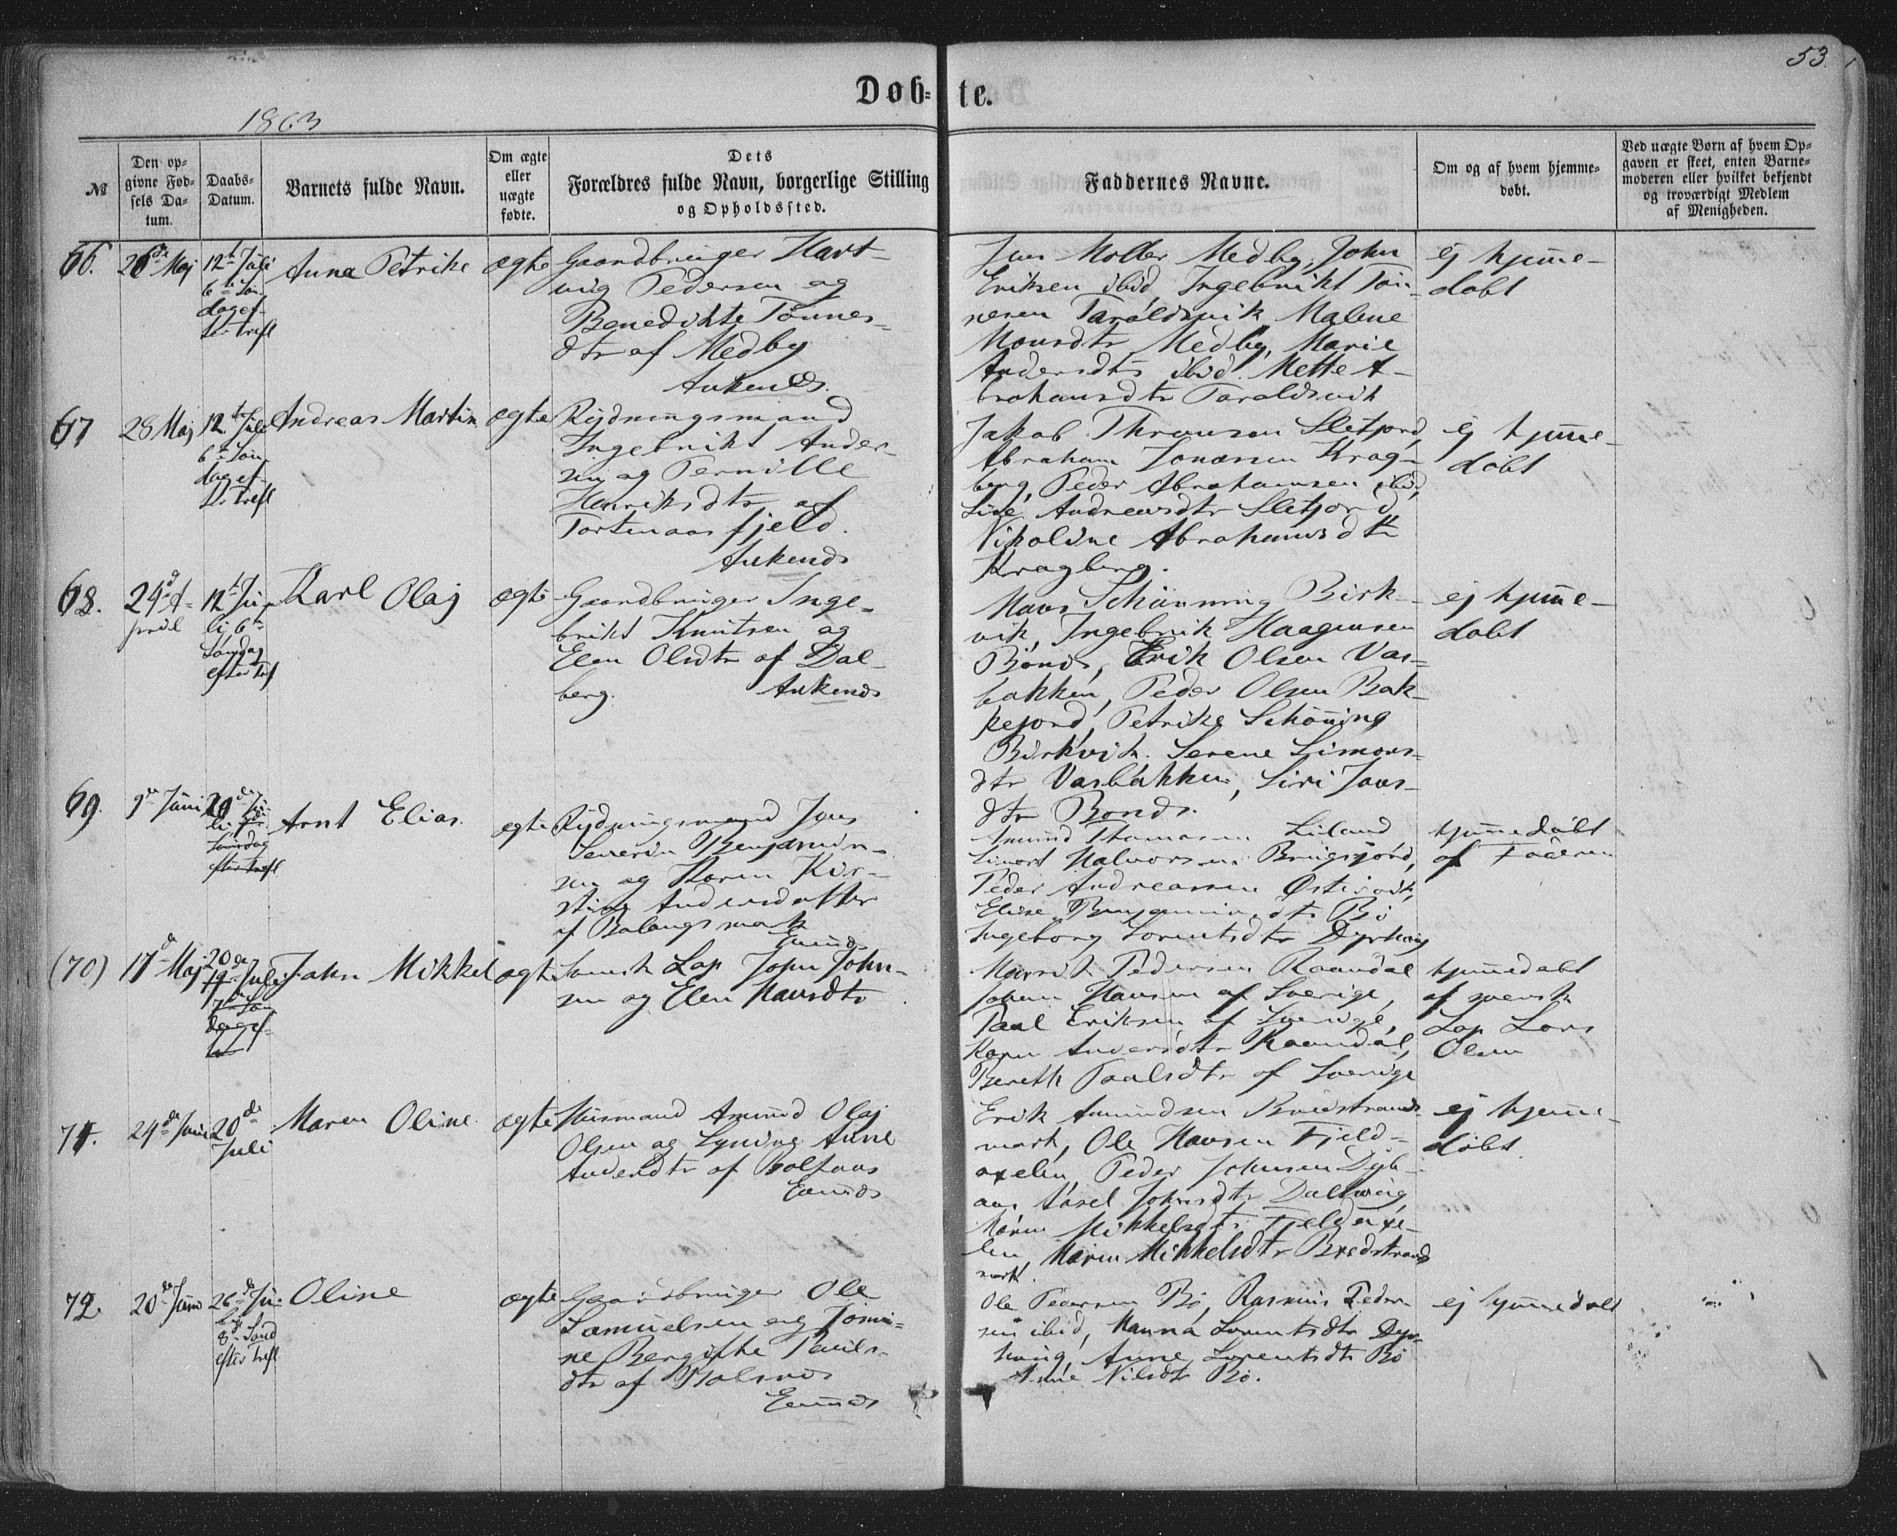 53.
Døb-te.
1863
№
Den op-
givne Fød-
sels Da-
tum.
Daabs-
Datum.
Barnets fulde Navn.
Om ægte
eller
uægte
fødte.
Dets
Forældres fulde Navn, borgerlige Stilling
og Opholdssted.
Faddernes Navne.
Om og af hvem hjemme-
døbt.
Ved uægte Børn af hvem Op-
gaven er skeet, enten Barne-
moderen eller hvilket bekjendt
og troværdigt Medlem
af Menigheden.
66.
26de Maj
12te Juli
6te Søn-
dag ef-
ter Trefl
Anna Petrike
ægte
Gaardbruger Hart-
vig Pedersen og
Benedikte Tønnes-
dtr af Medby
Ankenes.
Jens Moller Medby, John
Eriksen ibid, Ingebrikt Tøn-
nesen Taraldsvik Malene
Monsdtr Medby, Marie
Andersdtr ibid. Mette A-
brahamsdtr Taraldsvik
ej hjemme-
døbt
67
28 Maj
12te Juli
6te Søn-
dag ef-
ter Trefl
Andreas Martin
ægte
Rydningsmand
Ingebrikt Ander-
sen og Pernille
Henriksdtr af
Tortenaasfjeld.
Ankenes
Jakob Thronsen Sletjord
Abraham Jonassen Krag-
berg, Peder Abrahamsen ibid,
Lise Andreasdtr Sletjord,
Nikoline Abrahamsdtr
Kragberg.
ej hjemme-
døbt
68.
24de A-
pril
12te Ju-
li 6te
Søndag
efter Tref
Karl Olaj
ægte
Gaardbruger Inge-
brikt Knutsen og
Elen Olsdtr af Dal-
berg.
Ankenes
Hans Schønning Birk-
vik, Ingebrik Haagensen
Bonds, Erik Olsen Vas-
bakken, Peder Olsen Bak-
kejord, Petrike Schønning
Birkvik. Serene Simons-
dtr Vasbakken, Siri Jons-
dtr Bonds.
ej hjemme-
døbt
69.
9de Juni
20de Ju-
li
Søndag
efter Trefl
Arnt Elias.
ægte
Rydningsmand Jens
Severin Benjamin-
sen og Karen Kir-
stine Andersdatter
af Balangsmark
Evenes
Amund Thomasen Liland
Simon Halvorsen Bøigsfjord,
Peder Andreassen Østervik,
Elise Benjaminsdtr Bø
Ingeborg Lorentsdtr Dyrhaug
hjemmedøbt
af Faderen
(70)
17de Maj
20de
19 Juli
7de Søn-
dag ef-
ter
John Mikkel
ægte
Svensk Lap John John-
sen og Elen Hansdtr
Henrik Pedersen Raandal
Johan Hansen af Sverige,
Paul Eriksen af Sverige,
Karen Andersdtr Raandal,
Bereth Paalsdtr af Sverige
hjemmedøbt
af svensk
Lap Lars
Olsen
71.
24de Juni
20de
Juli
Maren Oline.
ægte
Husmand Amund Olaj
Olsen og Anne
Andersdtr af Bolhaas
Evenes
Erik Amundsen Bredstrands-
mark, Ole Hansen Fjeld-
axelen, Peder Johnsen Dyb-
aas, Johnsdtr Dalhaug,
Maren Mikkelsdtr Fjeldaxe-
len, Maren Mikkelsdtr Bredstrands
mark.
ej hjemme-
døbt.
72.
20de Juni
26de Ju-
li
8de Sønd
efter Trefl
Oline
ægte
Gaardbruger Ole
Samuelsen og Jomi-
ne Bergitte Pauls-
dtr af
Evenes
Ole Pedersen Bø, Rasmus Peder-
sen ibid, Hanna Lorentsdtr Dyr-
haug, Anne Lorentsdtr Bø
Anne Nilsdtr Bø.
ej hjemmedøbt